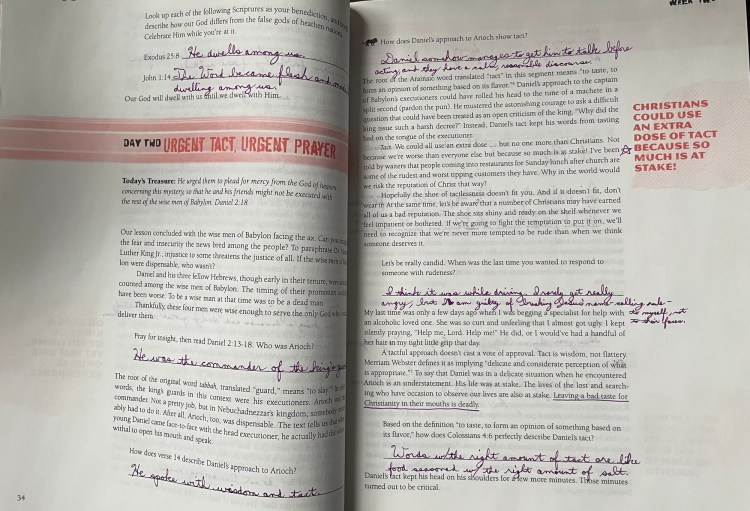 Look up each of the following Scriptures as your benediction, and
describe how our God differs from the false gods of heathen nations.
Celebrate Him while you're at it.
Exodus 25:8 He dwells among us.
John 1:14 The Word became flesh and
dwelling among us.
Our God will dwell with us until we dwell with Him.
DAY TWO URGENT TACT, URGENT PRAYER
Today's Treasure: He urged them to plead for mercy from the God of heaven
concerning this mystery, so that he and his friends might not be executed with
the rest of the wise men of Babylon. Daniel 2:18
Our lesson concluded with the wise men of Babylon facing the ax. Can you
the fear and insecurity the news bred among the people? To paraphrase
Luther King Jr., injustice to some threatens the justice of all. If the wise men
lon were dispensable, who wasn't?
Daniel and his three fellow Hebrews, though early in their tenure, were
counted among the wise men of Babylon. The timing of their promotion
have been worse. To be a wise man at that time was to be a dead man.
Thankfully, these four men were wise enough to serve the only God who
deliver them.
Pray for insight, then read Daniel 2:13-18. Who was Arioch?
He was the commander of the king's
The root of the original word tabbah, translated "guard," means "to slay."
words, the king's guards in this context were his executioners. Arioch was
commander. Not a pretty job, but in Nebuchadnezzar's kingdom, somebody
ably had to do it. After all, Arioch, too, was dispensable. The text tells us that
young Daniel came face-to-face with the head executioner, he actually had the
withal to open his mouth and speak.
How does verse 14 describe Daniel's approach to Arioch?
He spoke with wisdom and tact.
34
WEEK TWO
How does Daniel's approach to Arioch show tact?
Daniel somehow manages to get him to talk before
acting, and they have a calm, reasonable discourse.
The root of the Aramaic word translated "tact" in this segment means "to taste, to
form an opinion of something based on its flavor." Daniel's approach to the captain
of Babylon's executioners could have rolled his head to the tune of a machete in a
split second (pardon the pun). He mustered the astonishing courage to ask a difficult
question that could have been treated as an open criticism of the king. "Why did the
king issue such a harsh decree?" Instead, Daniel's tact kept his words from tasting
bad on the tongue of the executioner.
Tact. We could all use an extra dose ... but no one more than Christians. Not
because we're worse than everyone else but because so much is at stake! I've been
told by waiters that people coming into restaurants for Sunday lunch after church are
some of the rudest and worst tipping customers they have. Why in the world would
we risk the reputation of Christ that way?
Hopefully the shoe of tactlessness doesn't fit you. And if it doesn't fit, don't
wear it! At the same time, let's be aware that a number of Christians may have earned
all of us a bad reputation. The shoe sits shiny and ready on the shelf whenever we
feel impatient or bothered. If we're going to fight the temptation to put it on, we'll
need to recognize that we're never more tempted to be rude than when we think
someone deserves it.
CHRISTIANS
COULD USE
AN EXTRA
DOSE OF TACT
BECAUSE SO
MUCH IS AT
STAKE!
Let's be candid. When was the last time you wanted to respond to
someone with rudeness?
I think it was while driving. I rarely get really
angry, but I am guilty of name-calling
to myself, not
to their faces.
My last time was only a few days ago when I was begging a specialist for help with
an alcoholic loved one. She was so curt and unfeeling that I almost got ugly. I kept
silently praying, "Help me, Lord. Help me!" He did, or I would've had a handful of
her hair in my tight little grip that day.
A tactful approach doesn't cast a vote of approval. Tact is wisdom, not flattery.
Merriam Webster defines it as implying "delicate and considerate perception of what
is appropriate." To say that Daniel was in a delicate situation when he encountered
Arioch is an understatement. His life was at stake. The lives of the lost and search-
ing who have occasion to observe our lives are also at stake. Leaving a bad taste for
Christianity in their mouths is deadly.
Based on the definition "to taste, to form an opinion of something based on
its flavor," how does Colossians 4:6 perfectly describe Daniel's tact?
Words w/the right amount of tact are like
food seasoned w/ the right amount of salt.
Daniel's tact kept his head on his shoulders for a few more minutes. Those minutes
turned out to be critical.